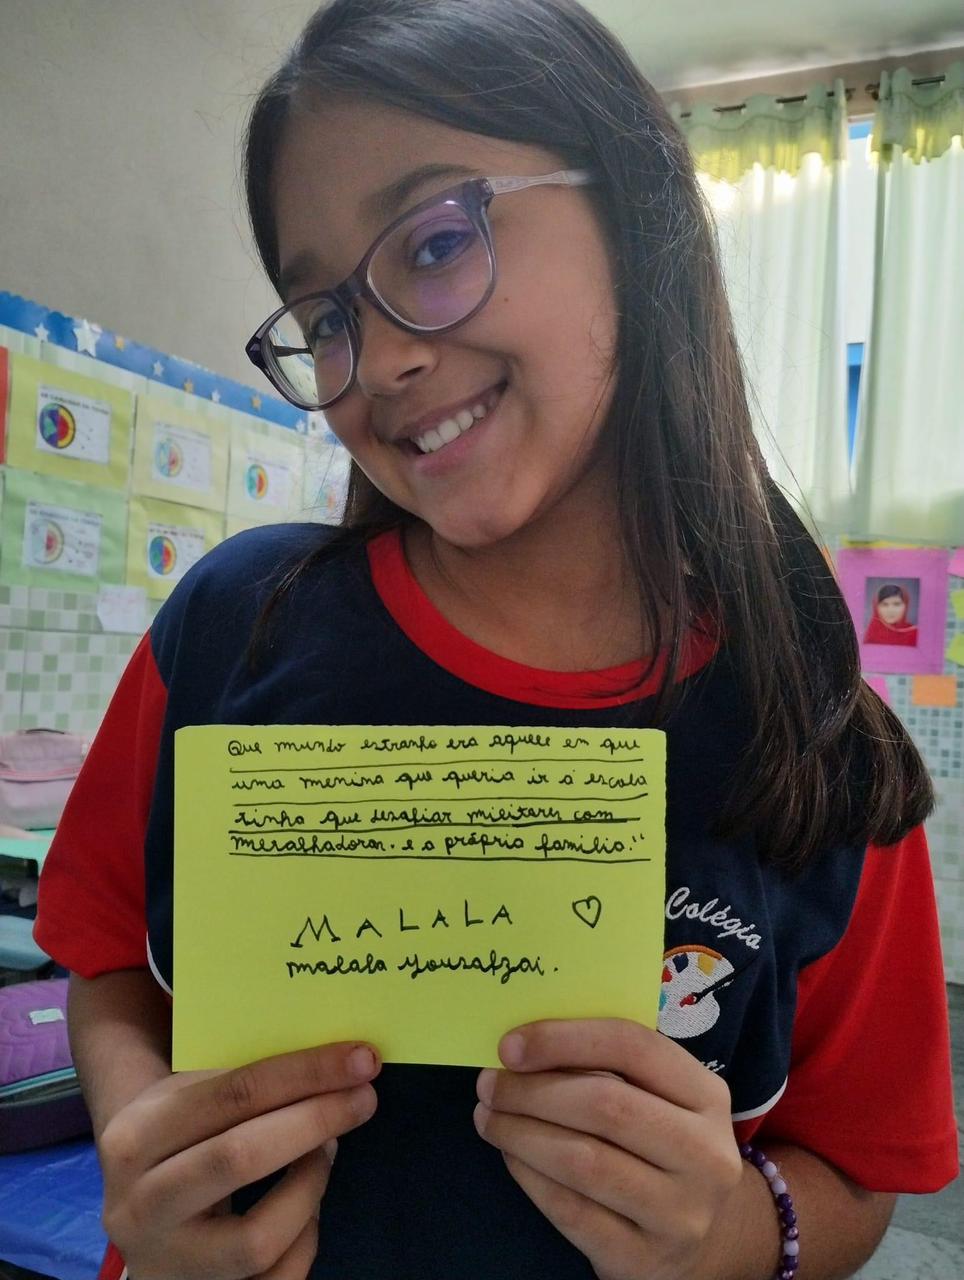 Que mundo estranho era aquele em que
uma menina que queria ir à escola
tinha que desafiar militares com
meralhadoras. e a própria família."
MALALA
malala Yousafzai.
Colégio